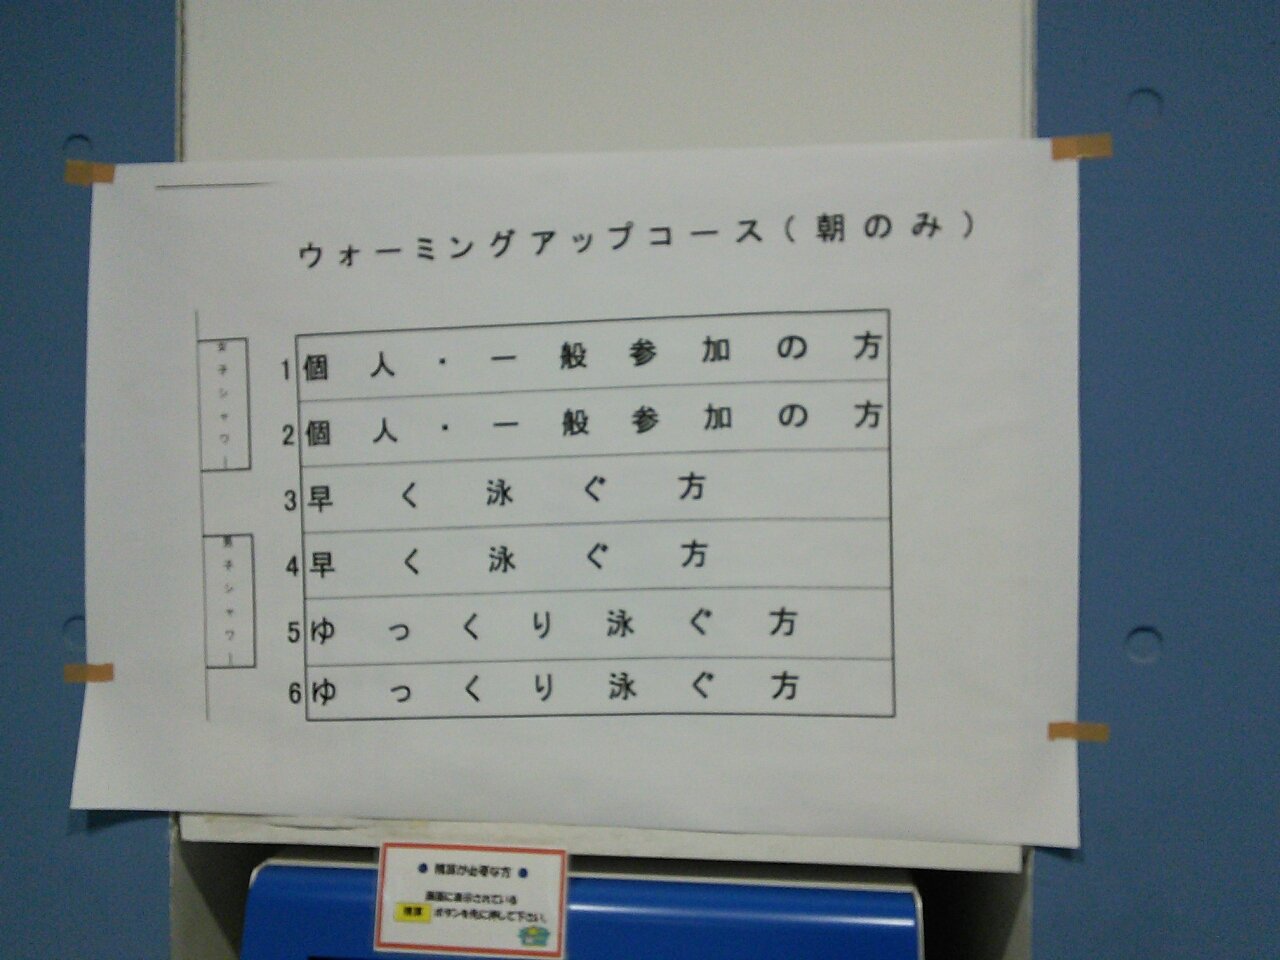 ウォーミングアップコース(朝のみ)
女子シャワー
1 個人・一般参加の方
2 個人・一般参加の方
3 早く泳ぐ方
4 早く泳ぐ方
男子シャワー
5 ゆっくり泳ぐ方
6 ゆっくり泳ぐ方
● 精算が必要な方 ●
画面に表示されている
精算 ボタンを先に押して下さい。